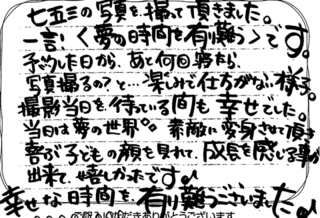 七五三の写真を撮って頂きました。
一言!〈夢の時間を有り難う〉です。
予約した日から、あと何回寝たら、
写真撮るの?と…楽しみで仕方がない様子。
撮影当日を、待っている間も幸せでした。
当日は夢の世界°°素敵に変身させて頂き
喜ぶ子どもの顔を見れて、成長を感じる事が
出来て、嬉しかったです。
幸せな時間を、有り難うございました。